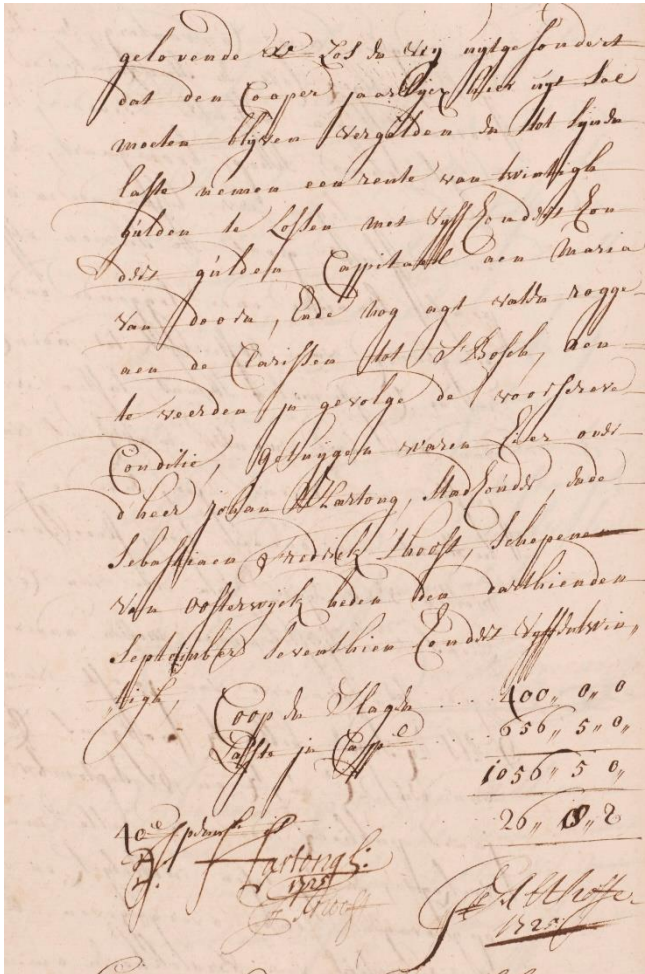 gelovende Los en vrij uijtgesondert
dat den Cooper jaarlijcx hier uijt sal
moeten blijven vergulden en tot sijnen
laste nemen een rente van twintigh
gulden te Lossen met vijff hondert
gulden Cappitaal aen Maria
van Doorn, Ende nog agt vaten rogge
aen de Clarissen tot S'Bosch, aen
te veerden in gevolge de voorschreve
Conditie, getuijgen waren hier over
d'heer johan Hartong, Stadhouder, ende
Sebastiaen Fredrick 'thooft, Schepenen
van oosterwijck heden den darthienden
September seventhien hondert vijffentwin„
tigh,
Coop en Slagen .... 400„ 0„ 0
Laste in Cappl .... 656„ 5„ 0„
1056„ 5 0„
26„ 8„ 2
40e penn:
Hartongh:
1725
'thooft
1725